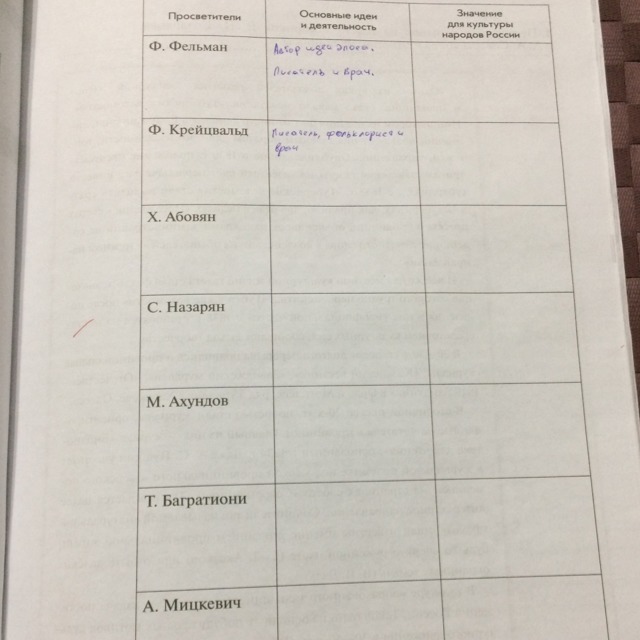 Просветители
Основные идеи
и деятельность
Значение
для культуры
народов России
Ф. Фельман
Автор идеи эпоса.
Писатель и врач.
Ф. Крейцвальд
Писатель, фольклорист и
врач
Х. Абовян
С. Назарян
М. Ахундов
Т. Багратиони
А. Мицкевич